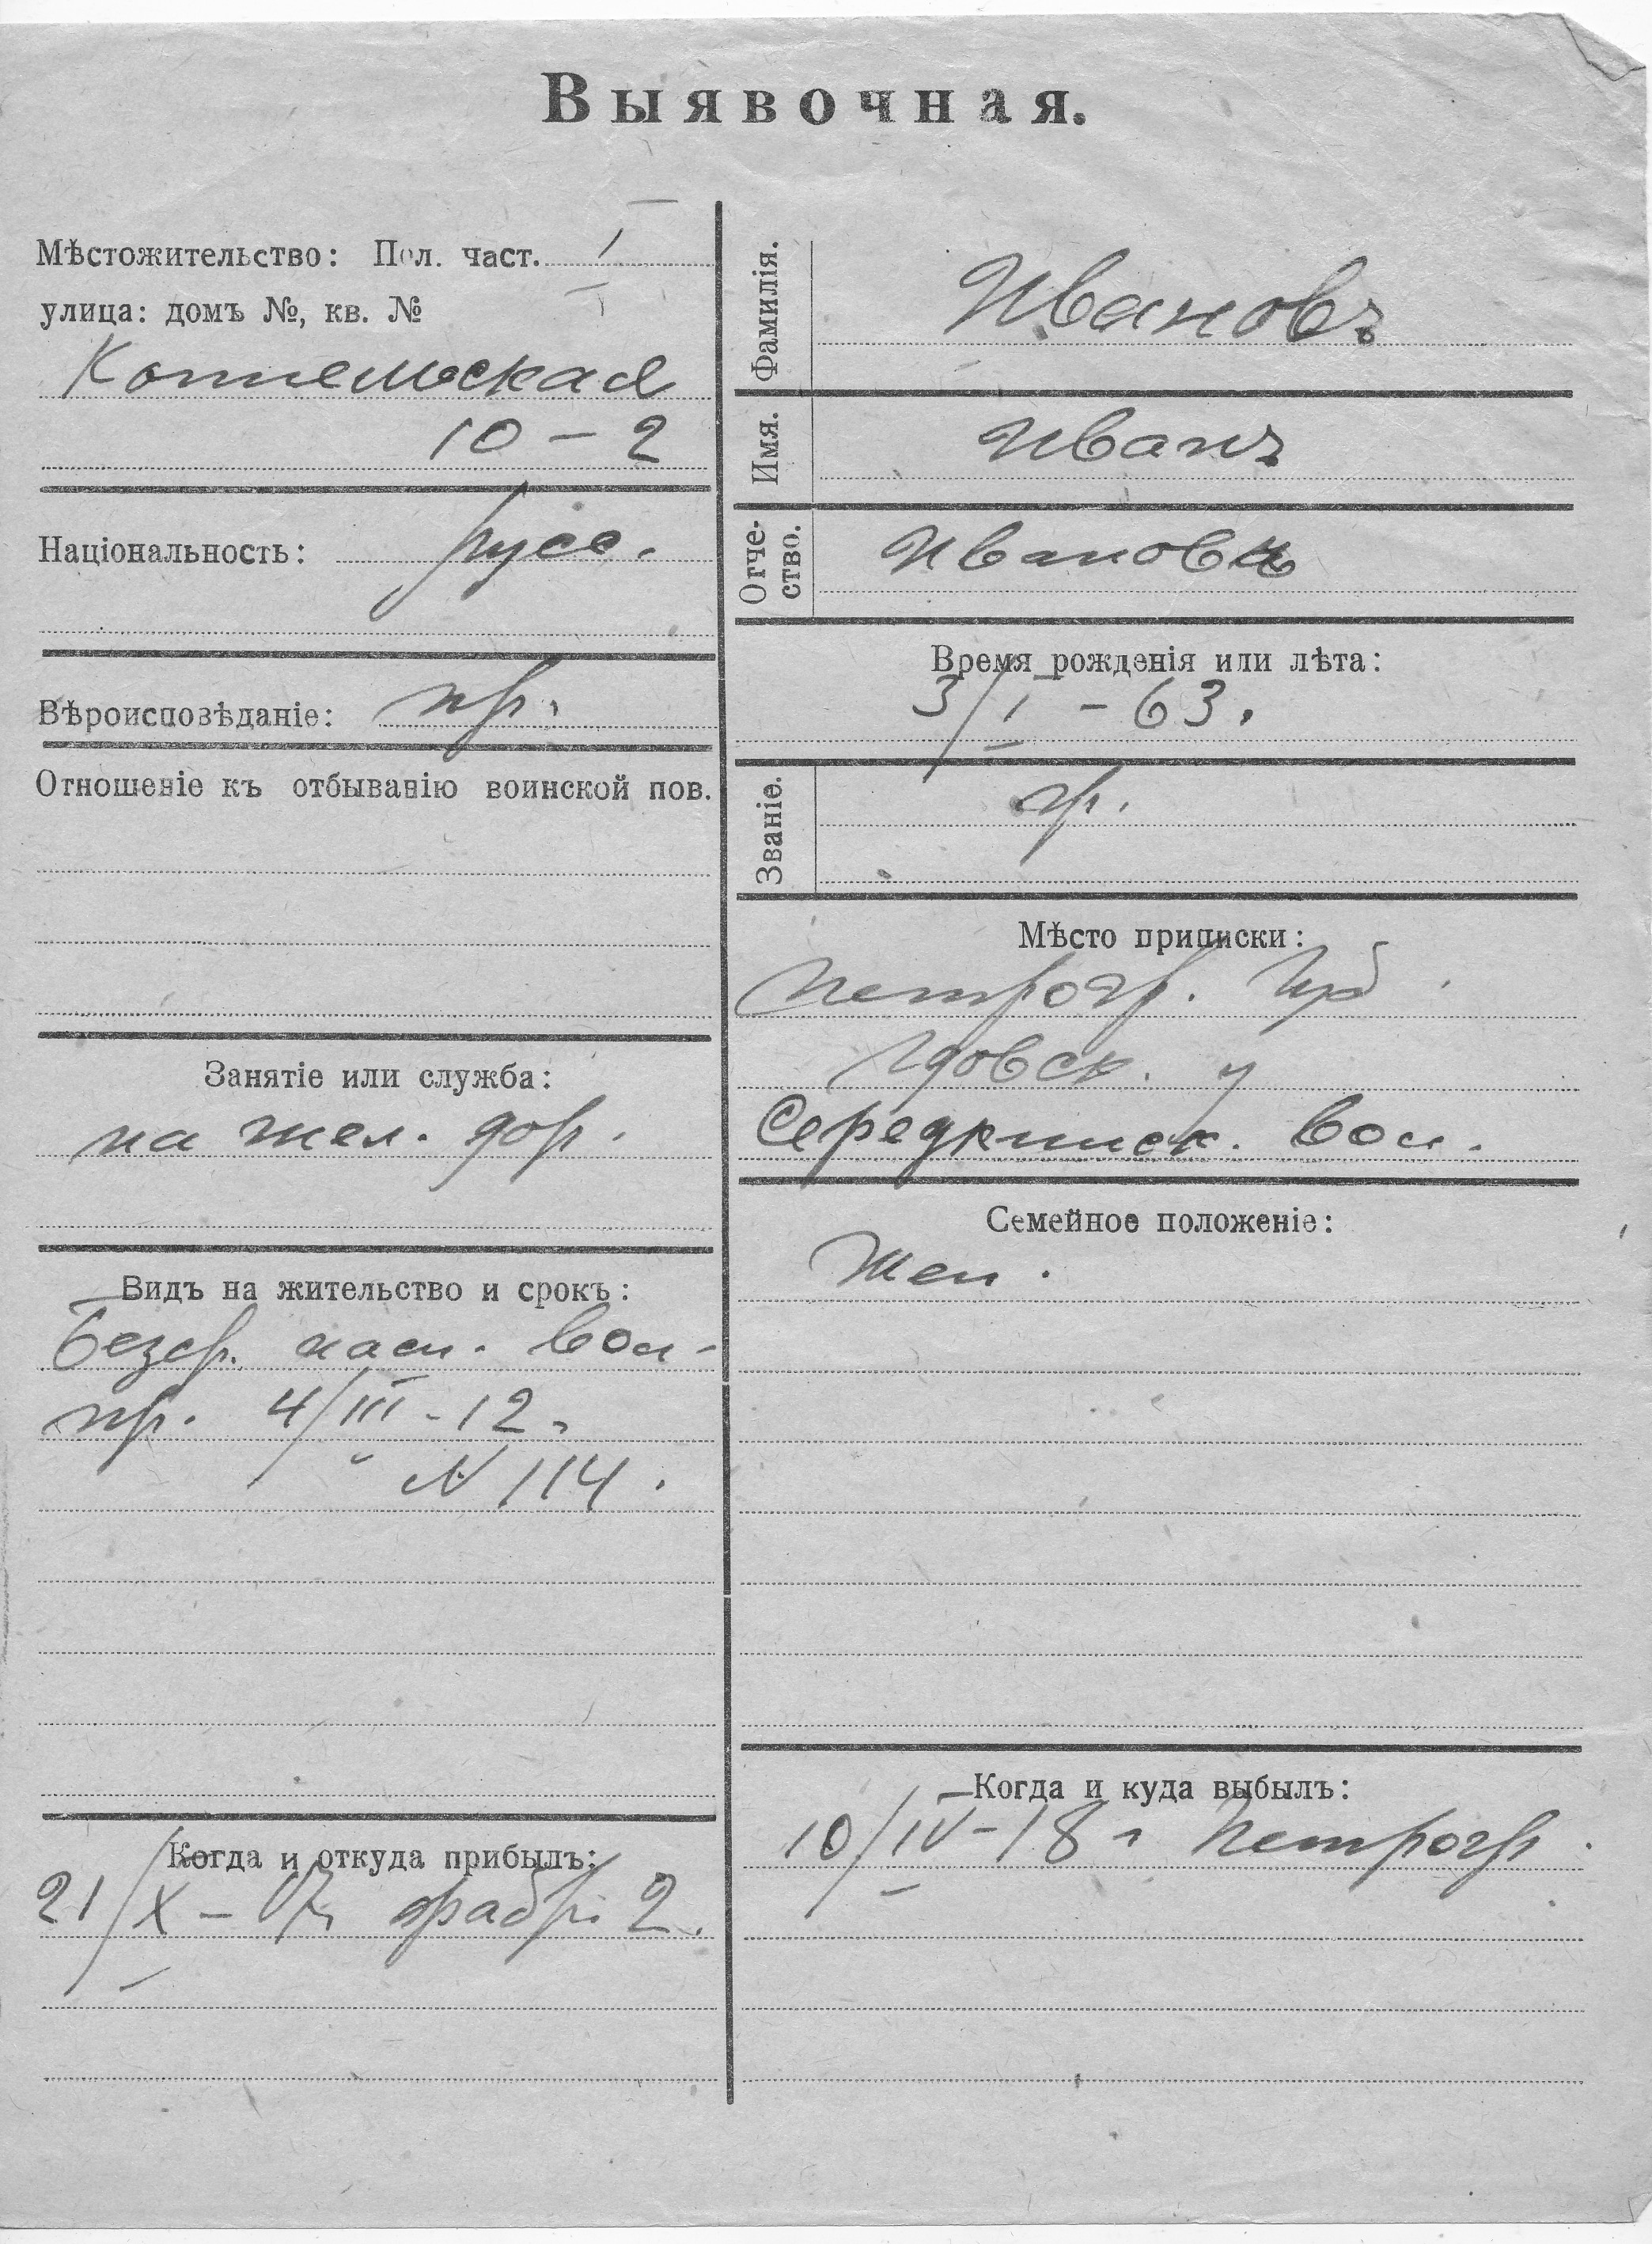 Выявочная.
Мѣстожительство: Пол. част. I
улица: домъ №, кв. №
Коппельская
10 – 2
Національность: русс.
Вѣроисповѣданіе: пр.
Отношеніе къ отбыванію воинской пов.
Занятіе или служба:
на жел. дор.
Видъ на жительство и срокъ:
Безср. пасп. вол.
пр. 4/III - 12 г.
N 114.
Когда и откуда прибылъ:
21/X – 17 г. 2.
Фамилія. Ивановъ
Имя. Иванъ
Отчество. Ивановъ
Время рожденія или лѣта:
3/I – 63.
Званіе. кр.
Мѣсто приписки:
Петрогр. губ.
Гдовск. у
Середкинск. вол.
Семейное положеніе:
Жен.
Когда и куда выбылъ:
10/IV – 18 г Петрогр.